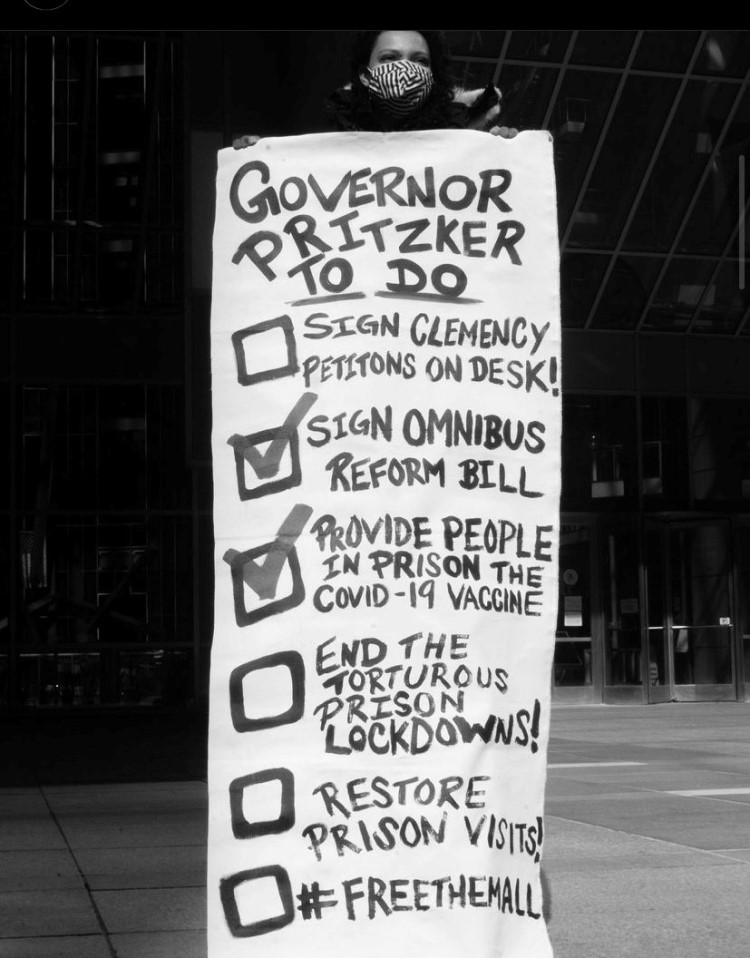 GOVERNOR
PRITZKER
TO DO
SIGN CLEMENCY
PETITONS ON DESK!
SIGN OMNIBUS
REFORM BILL
PROVIDE PEOPLE
IN PRISON THE
COVID-19 VACCINE
END THE
TORTUROUS
PRISON
LOCKDOWNS!
RESTORE
PRISON VISITS!
#FREETHEMALL